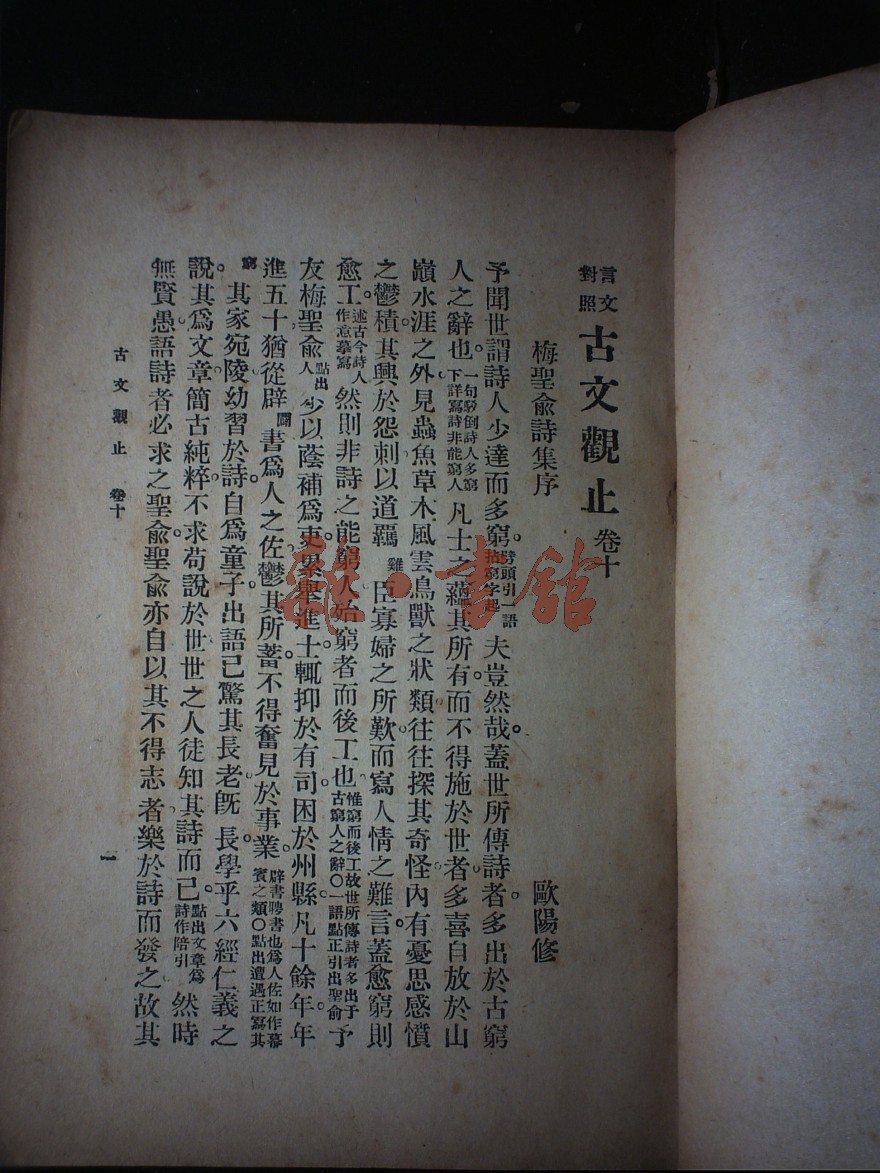 言文對照 古文觀止 卷十
梅聖俞詩集序 歐陽修
予聞世謂詩人少達而多窮。劈頭引一語拈窮字起夫豈然哉。蓋世所傳詩者。多出於古窮
人之辭也。一句駁倒詩人多窮下詳寫詩非能窮人凡士之蘊其所有而不得施於世者多喜自放於山
巓水涯之外見蟲魚草木風雲鳥獸之狀類往往探其奇怪內有憂思感憤
之鬱積其興於怨刺以道羈雞臣寡婦之所歎而寫人情之難言。蓋愈窮則
愈工。述古今詩人作意摹寫然則非詩之能窮人殆窮者而後工也惟窮而後工故世所傳詩者多出于古窮人之辭〇一語點正引出聖俞予
友梅聖俞點出人少以蔭補爲吏。累舉進士。輒抑於有司。困於州縣。凡十餘年。年
進五十猶從辟闢書爲人之佐鬱其所蓄不得奮見於事業。辟書聘書也爲人佐如作幕賓之類〇點出遭遇正寫其
窮其家宛陵幼習於詩。自爲童子。出語已驚其長老旣長。學乎六經仁義之
說。其爲文章簡古純粹不求苟說於世世之人徒知其詩而已。點出文章爲詩作陪引然時
無賢愚語詩者必求之聖俞。聖俞亦自以其不得志者樂於詩而發之故其
古文觀止 卷十 一
雜·書館